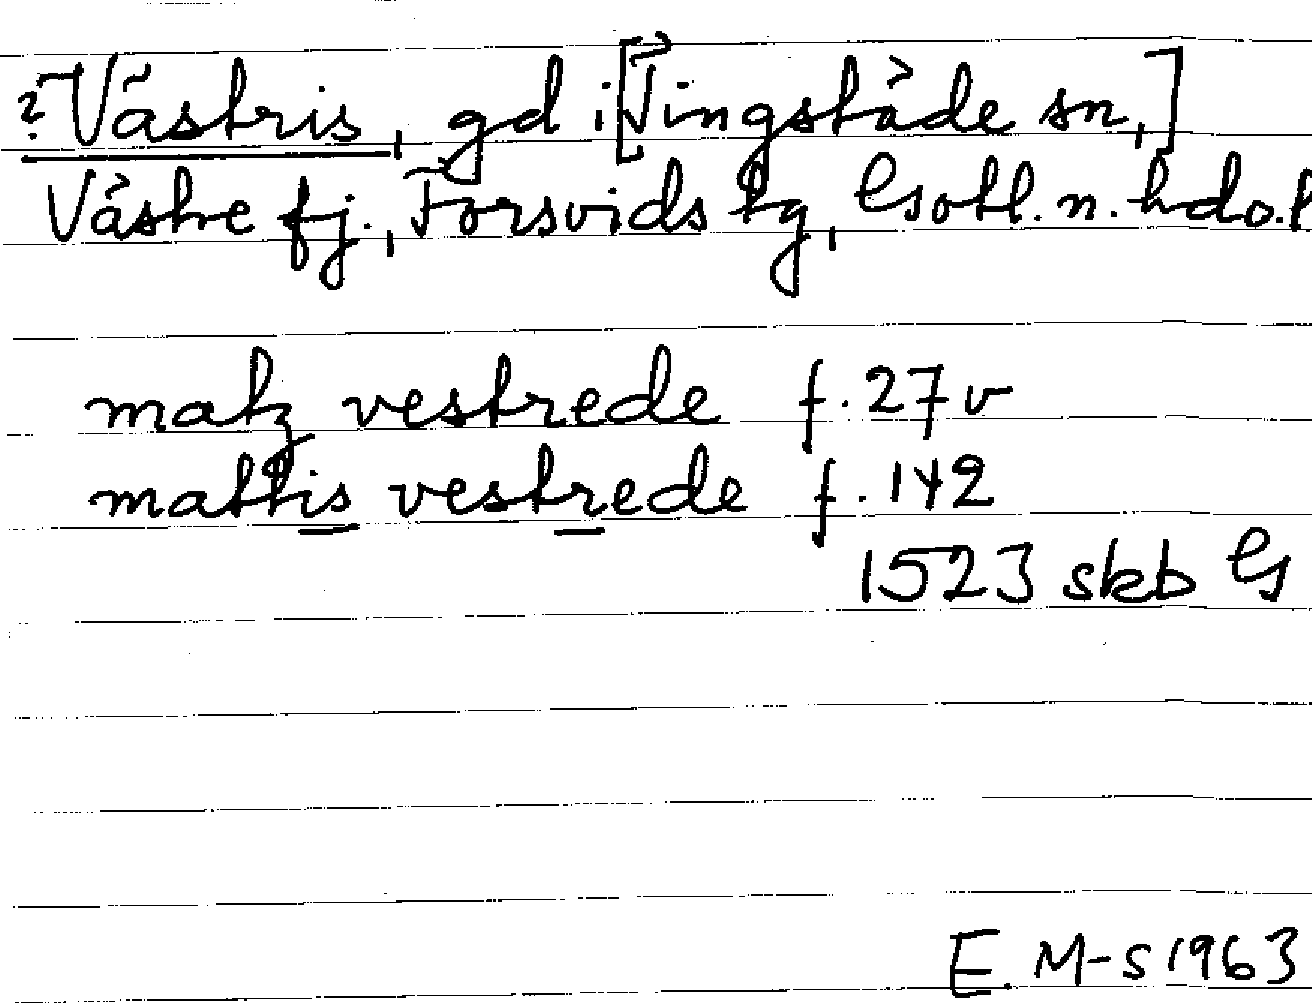 ? Västris, gd i [Tingstäde sn,]
Västre fj., Forsvids tg, Gotl. n. hdo. f
matz vestrede f. 27 v
mattis vestrede f. 142
1523 skb G
E. M-S 1963